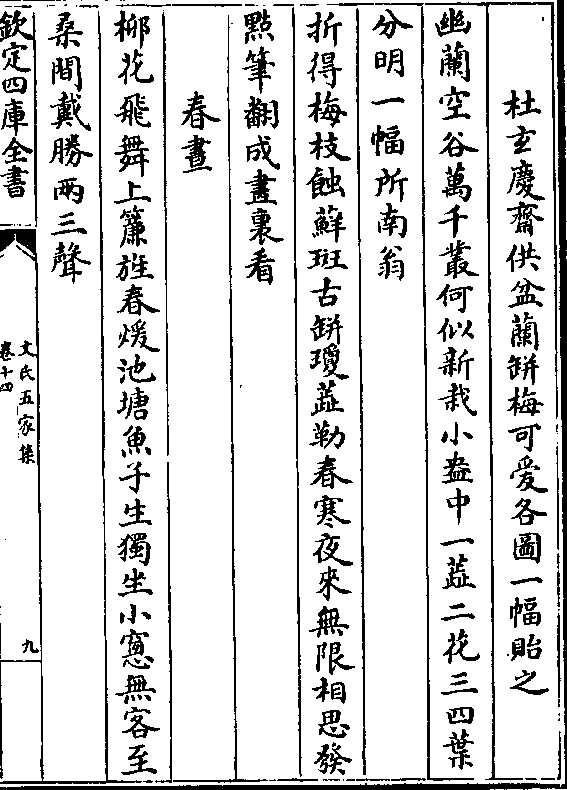 杜玄慶齋供盆蘭缾梅可爱各圖一幅貽之
幽蘭空谷萬千叢何似新栽小盎中一蕋二花三四葉
分明一幅所南翁
折得梅枝蝕蘚斑古缾瓊蕋勒春寒夜來無限相思發
點筆翻成畫裏看
春晝
栁花飛舞上簾旌春煖池塘魚子生獨坐小窻無客至
桑間戴勝兩三聲
欽定四庫全書
文氏五家集
卷十四
九